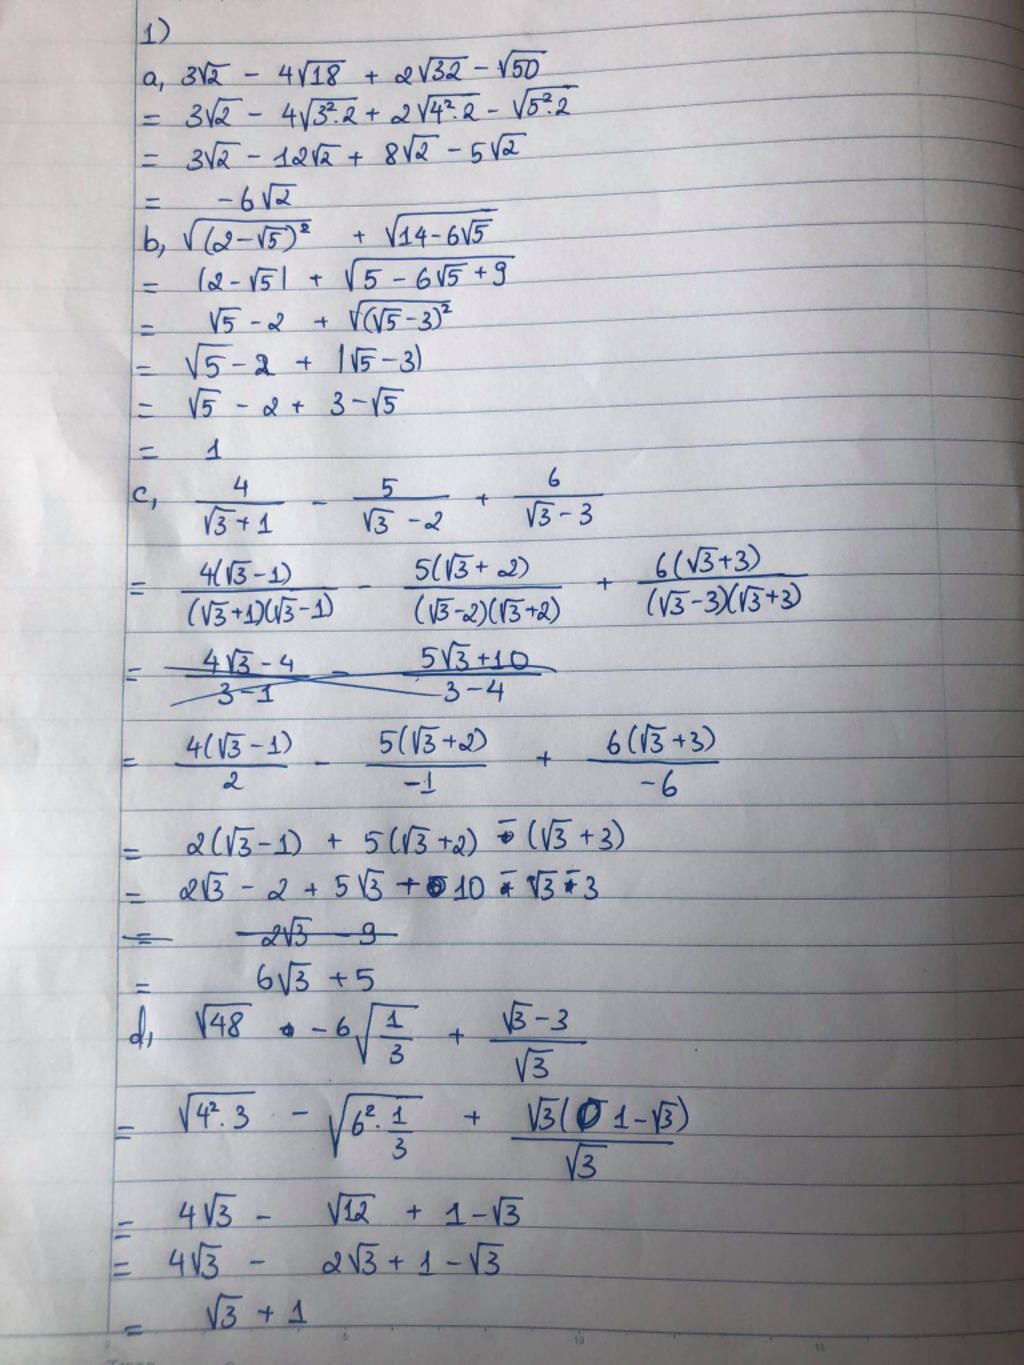 1)
a, 3√2 - 4√18 + 2√32 - √50
= 3√2 - 4√(3².2) + 2√(4².2) - √(5².2)
= 3√2 - 12√2 + 8√2 - 5√2
= -6√2
b, √((2-√5)²) + √(14-6√5)
= |2-√5| + √(5-6√5+9)
= √5-2 + √((√5-3)²)
= √5-2 + |√5-3)
= √5 - 2 + 3-√5
= 1
c, 4/(√3+1) - 5/(√3-2) + 6/(√3-3)
= 4(√3-1)/((√3+1)(√3-1)) - 5(√3+2)/((√3-2)(√3+2)) + 6(√3+3)/((√3-3)(√3+3))
= (4√3-4)/(3-1) - (5√3+10)/(3-4)
= 4(√3-1)/2 - 5(√3+2)/-1 + 6(√3+3)/-6
= 2(√3-1) + 5(√3+2) - (√3+3)
= 2√3 - 2 + 5√3 + 10 - √3 - 3
= 2√3 - 9
= 6√3 + 5
d, √48 - 6√(1/3) + (√3-3)/√3
= √(4².3) - √(6².1/3) + √3(1-√3)/√3
= 4√3 - √12 + 1-√3
= 4√3 - 2√3 + 1 - √3
= √3 + 1
5 10 15